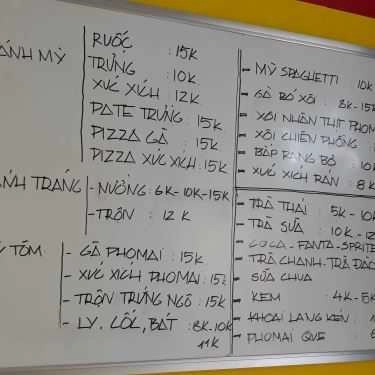 ÁNH MỲ
RUỐC : 15K
TRỨNG : 10K
XÚC XÍCH : 12K
PATE TRỨNG : 15K
PIZZA GÀ : 15K
PIZZA XÚC XÍCH : 15K
ÁNH TRÁNG
- NƯỚNG : 6K - 10K - 15K
- TRỘN : 12 K
TÔM
- GÀ PHOMAI : 15K
- XÚC XÍCH PHOMAI : 15K
- TRỘN TRỨNG NGÔ : 15K
- LY, CỐC, BÁT : 8K - 10K
11K
- MỲ SPAGHETTI 10K
- GÀ BÓ XÔI : 8K - 15K
- XÔI NHÂN THỊT PHOM
- XÔI CHIÊN PHỒNG :
- BẮP RANG BƠ : 10K
- XÚC XÍCH RÁN : 8K
- TRÀ THÁI : 5K - 10K
- TRÀ SỮA : 10K - 12
- COCA - FANTA - SPRITE
- TRÀ CHANH - TRÀ ĐÀO
- SỮA CHUA
- KEM : 4K - 5K
- KHOAI LANG KÉN : 1
- PHOMAI QUE :